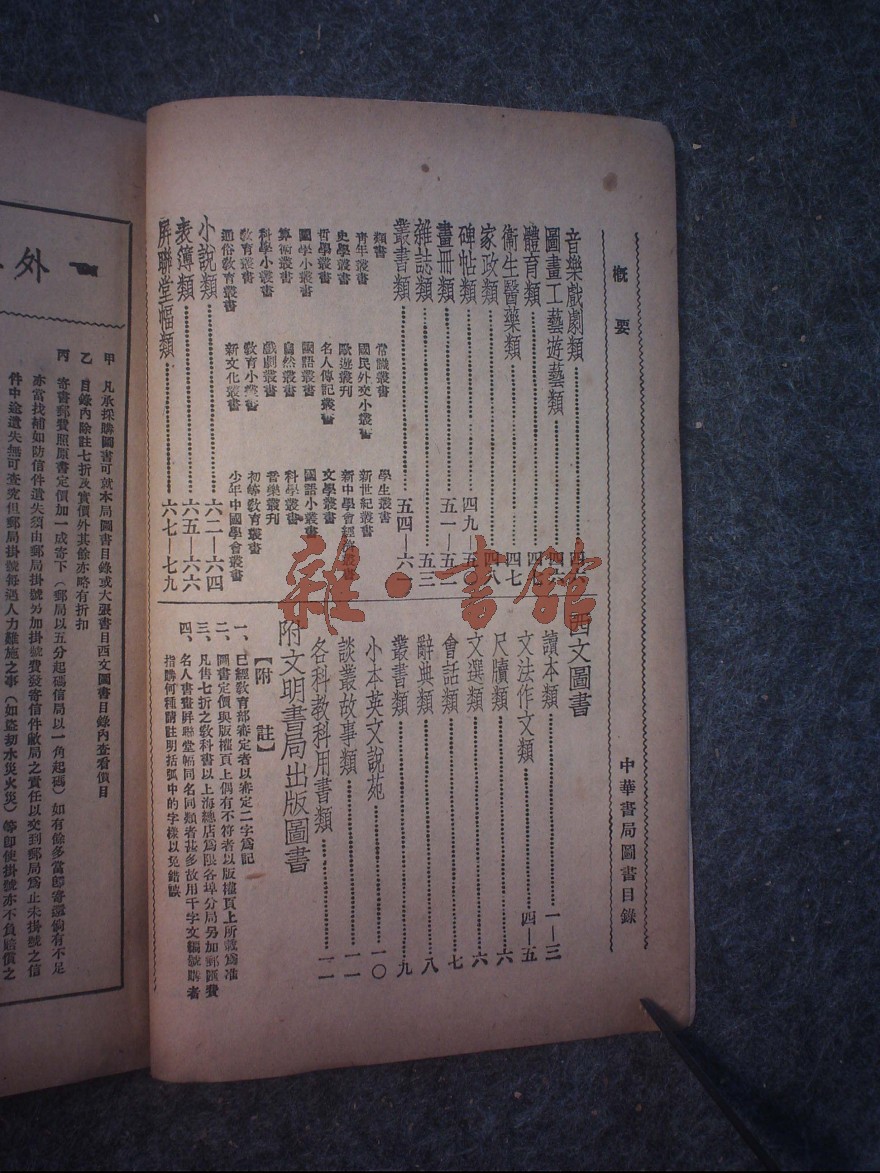 概要
中華書局圖書目錄
音樂戲劇類
圖畫工藝遊藝類
體育類
衛生醫藥類 四七
家政類 四八
碑帖類 四九—五〇
畫冊類 五一—五二
雜誌類 五三
叢書類 五四—六一
類書 常識叢書 學生叢書
青年叢書 國民外交小叢書 新世紀叢書
史學叢書 歐遊叢刊 新中學會經濟叢書
哲學叢書 名人傳記叢書 文學叢書
國學小叢書 國語叢書 國語小叢書
算術叢書 自然叢書 科學叢書
科學小叢書 戲劇叢書 音樂叢刊
教育叢書 教育小叢書 初等教育叢書
通俗教育叢書 新文化叢書 少年中國學會叢書
小說類 六二—六四
表簿類 六五—六六
屏聯堂幅類 六七—七九
西文圖書
讀本類 一—三
文法作文類 四—五
尺牘類 六
文選類 六
會話類 七
辭典類 八
叢書類 九
小本英文說苑 一〇
談叢故事類 一一
各科教科用書類 一一
附文明書局出版圖書
【附註】
一、已經教育部審定者以審定二字為記
二、圖書定價與版權頁上偶有不符者以版權頁上所載為準
三、凡售七折之教科書以上海總店為限各埠分局另加郵匯費
四、名人書畫屏聯堂幅同名同類者甚多故用千字文編號購者
指購何種請註明括弧中的字樣以免錯誤
外
甲 凡承採購圖書可就本局圖書目錄或大張書目西文圖書目錄內查看價目
乙 目錄內除註七折及實價外其餘亦略有折扣
丙 寄書郵費照原書定價加一成寄下（郵局以五分起碼信局以一角起碼）如有餘多當即寄還倘有不足
亦當找補如防信件遺失須由郵局掛號另加掛號費發寄信件敝局之責任以交到郵局為止未掛號之信
件中途遺失無可查究但郵局掛號每遇人力難施之事（如盜劫水災火災）等即使掛號亦不負賠償之
雜·書館